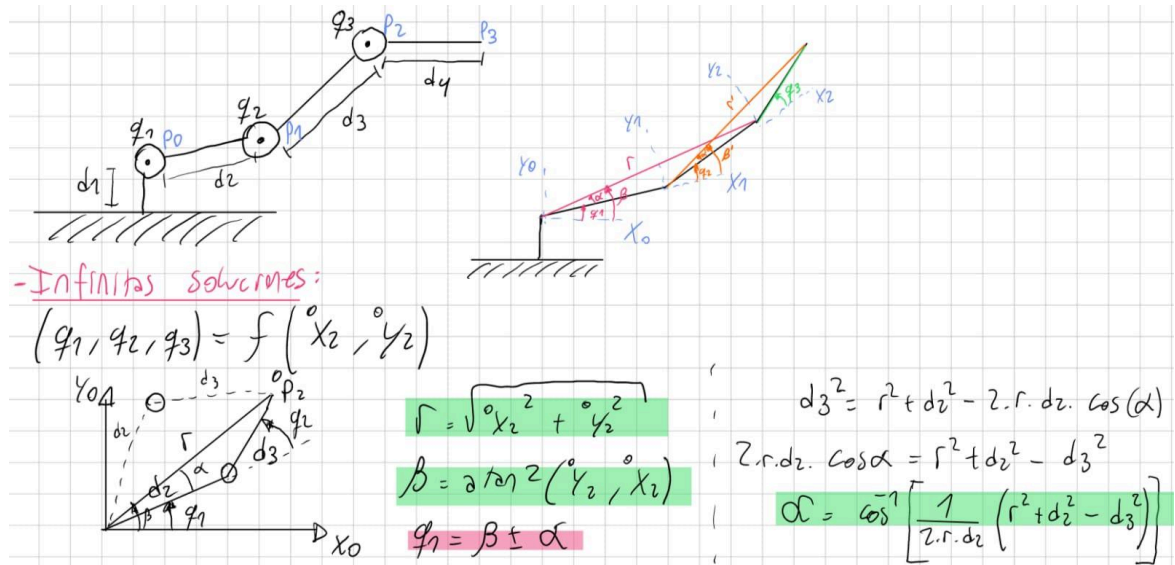 q3 P2 P3
d4
q2
q1 P0 P1
d3
d1 d2
Y2
r' q3 X2
Y1
Y0 r β'
q2 X1
α β
q1
X0
-Infinitas soluciones:
(q1, q2, q3) = f (⁰X2, ⁰Y2)
Y0 d3 ⁰P2
d2 r q2
α d3
d2
β q1
X0
r = √(⁰X2² + ⁰Y2²)
β = atan2(⁰Y2, ⁰X2)
q1 = β ± α
d3² = r² + d2² - 2.r.d2. cos(α)
2.r.d2. cosα = r² + d2² - d3²
α = cos⁻¹ [1/(2.r.d2) (r² + d2² - d3²)]